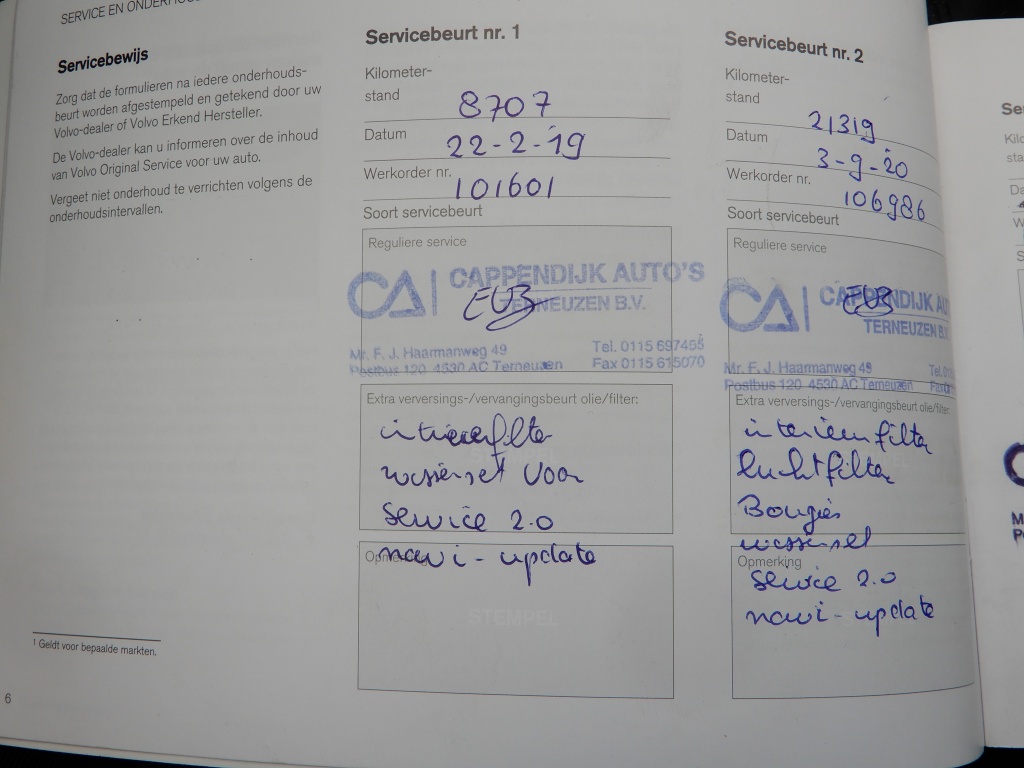 SERVICE EN ONDERHOU
Servicebewijs
Zorg dat de formulieren na iedere onderhouds-
beurt worden afgestempeld en getekend door uw
Volvo-dealer of Volvo Erkend Hersteller.
De Volvo-dealer kan u informeren over de inhoud
van Volvo Original Service voor uw auto.
Vergeet niet onderhoud te verrichten volgens de
onderhoudsintervallen.
1 Geldt voor bepaalde markten.
6
Servicebeurt nr. 1
Kilometer-
stand
8707
Datum
22-2-19
Werkorder nr.
101601
Soort servicebeurt
Reguliere service
CA CAPPENDIJK AUTO'S
TERNEUZEN B.V.
Mr. F. J. Haarmanweg 49 Tel. 0115 697455
Postbus 120 4530 AC Terneuzen Fax 0115 615070
Extra verversings-/vervangingsbeurt olie/filter:
wisserset Voor
Service 2.0
Opmerking
navi-update
STEMPEL
Servicebeurt nr. 2
Kilometer-
stand
21319
Datum
3-9-20
Werkorder nr.
106986
Soort servicebeurt
Reguliere service
CA CAPPENDIJK AU
TERNEUZEN B.
Mr. F. J. Haarmanweg 49 Tel.
Postbus 120 4530 AC Terneuzen Fax
Extra verversings-/vervangingsbeurt olie/filter:
interieurfilter
luchtfilter
Bougies
wisserset
Opmerking
Service 2.0
navi-update